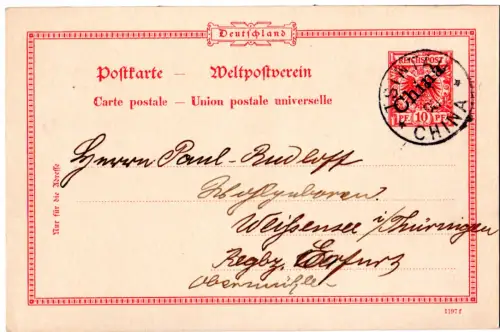 Deutschland
Postkarte — Weltpostverein
Carte postale — Union postale universelle
REICHSPOST
China
10 PF 10 PF
CHINA
Nur für die Adresse
Herrn Paul Rudloff
Wohlgeboren.
Weißensee i/Thüringen
Regbz Erfurt
Obermühle